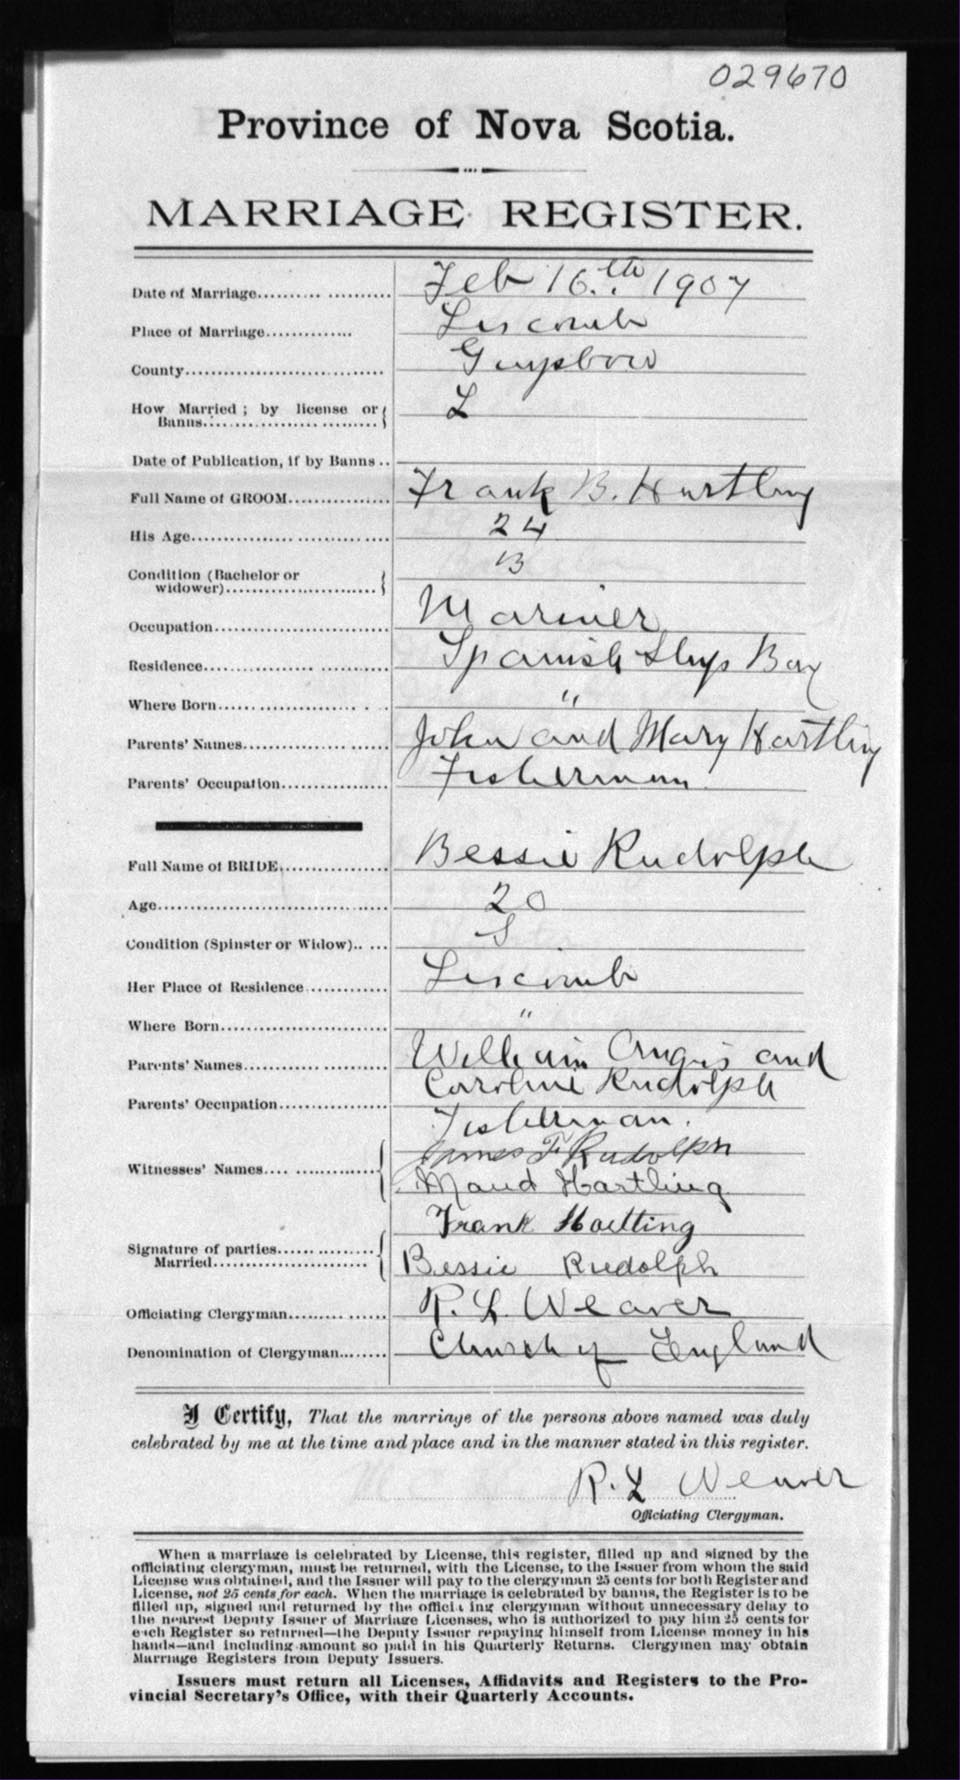 029670
Province of Nova Scotia.
MARRIAGE REGISTER.
Date of Marriage........ Feb 16.th 1907
Place of Marriage........ Liscomb
County........ Guysboro
How Married; by license or Banns........ L
Date of Publication, if by Banns..
Full Name of GROOM........ Frank B. Hartling
His Age........ 24
Condition (Bachelor or widower)........ B
Occupation........ Mariner
Residence........ Spanish Ship Bay
Where Born........ "
Parents' Names........ John and Mary Hartling
Parents' Occupation........ Fisherman
Full Name of BRIDE........ Bessie Rudolph
Age........ 20
Condition (Spinster or Widow)..... S
Her Place of Residence........ Liscomb
Where Born........ "
Parents' Names........ William Angus and
Caroline Rudolph
Parents' Occupation........ Fisherman.
Witnesses' Names........ James F Rudolph
Maud Hartling
Signature of parties Married........ Frank Hartling
Bessie Rudolph
Officiating Clergyman........ R. L. Weaver
Denomination of Clergyman....... Church of England
I Certify, That the marriage of the persons above named was duly
celebrated by me at the time and place and in the manner stated in this register.
R. L Weaver
Officiating Clergyman.
When a marriage is celebrated by License, this register, filled up and signed by the
officiating clergyman, must be returned, with the License, to the Issuer from whom the said
License was obtained, and the Issuer will pay to the clergyman 25 cents for both Register and
License, not 25 cents for each. When the marriage is celebrated by banns, the Register is to be
filled up, signed and returned by the officiating clergyman without unnecessary delay to
the nearest Deputy Issuer of Marriage Licenses, who is authorized to pay him 25 cents for
each Register so returned—the Deputy Issuer repaying himself from License money in his
hands—and including amount so paid in his Quarterly Returns. Clergymen may obtain
Marriage Registers from Deputy Issuers.
Issuers must return all Licenses, Affidavits and Registers to the Pro-
vincial Secretary's Office, with their Quarterly Accounts.